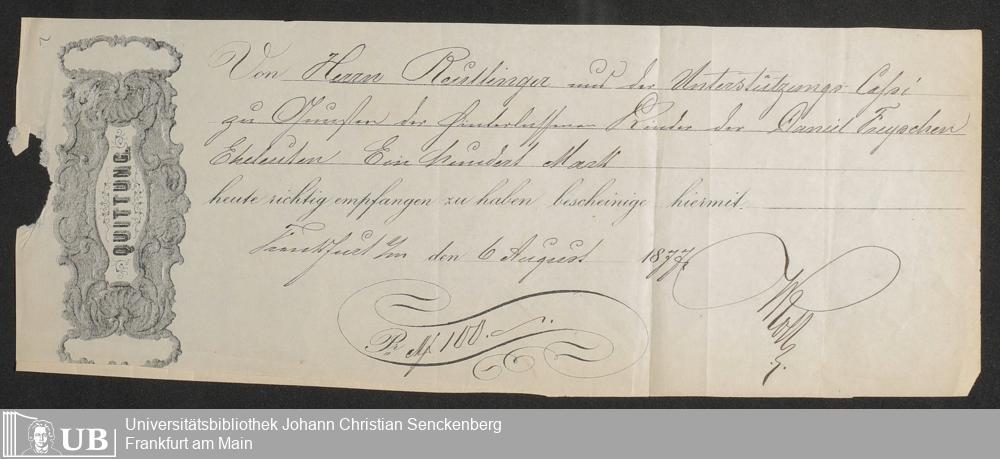 QUITTUNG.
Von Herrn Reutlinger und der Unterstützungs-Casse
zu Gunsten der hinterlassenen Kinder der Daniel Freyschen
Eheleuten Ein hundert Mark
heute richtig empfangen zu haben bescheinige hiermit.
Frankfurt a/m den 6 August 1877.
Pr. M. 100.
UB
Universitätsbibliothek Johann Christian Senckenberg
Frankfurt am Main